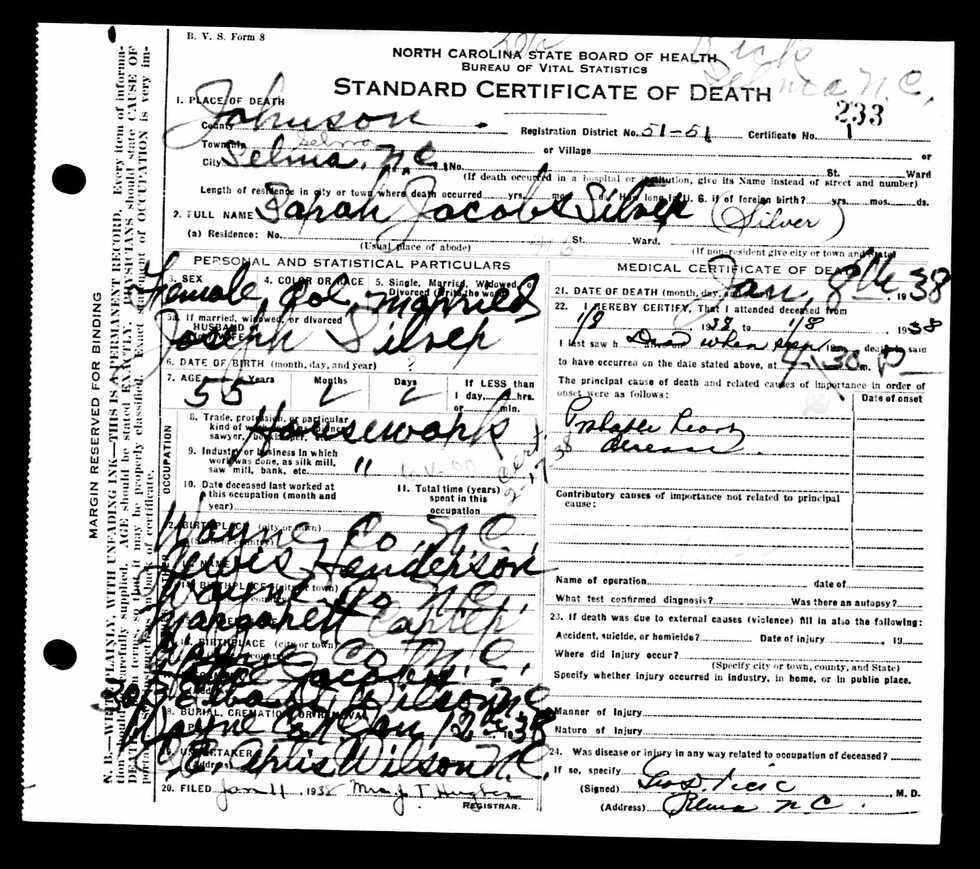 B. V. S. Form 8
NORTH CAROLINA STATE BOARD OF HEALTH
BUREAU OF VITAL STATISTICS
Selma N.C.
STANDARD CERTIFICATE OF DEATH
233
1. PLACE OF DEATH
County Johnson. Registration District No. 51-51 Certificate No. 1
Township Selma or Village or
City Selma, N.C. No. St. Ward
(If death occurred in a hospital or institution, give its Name instead of street and number)
Length of residence in city or town where death occurred yrs. mos. ds. How long in U. S. if of foreign birth? yrs. mos. ds.
2. FULL NAME Sarah Jacobs Silver (Silver)
(a) Residence: No. St. Ward.
(Usual place of abode) (If non-resident give city or town and State)
PERSONAL AND STATISTICAL PARTICULARS
3. SEX 4. COLOR OR RACE 5. Single, Married, Widowed, or Divorced (write the word)
Female, Col, married
5a. If married, widowed, or divorced
HUSBAND of
Joseph Silver
6. DATE OF BIRTH (month, day, and year) ?
7. AGE Years Months Days If LESS than
55 2 2 1 day, hrs.
or min.
8. Trade, profession, or particular
kind of work
sawyer, bookkeeper, etc.
Housework
9. Industry or business in which
work was done, as silk mill,
saw mill, bank, etc. "
10. Date deceased last worked at
this occupation (month and
year)
11. Total time (years)
spent in this
occupation
OCCUPATION
12. BIRTHPLACE (city or town)
Wayne Co. N.C.
13. NAME
Henderson
14. BIRTHPLACE (city or town)
Wayne Co. N.C.
Margarett Carter
16. BIRTHPLACE (city or town)
Wayne Co. N.C.
Jacobs
303 Wilson N.C.
18. BURIAL, CREMATION OR REMOVAL
Wayne 12 38
19. UNDERTAKER
(Address)
Wilson N.C.
20. FILED Jan 11 1938 Mrs J. T. Hughes
REGISTRAR.
MEDICAL CERTIFICATE OF DEATH
21. DATE OF DEATH (month, day, and year) Jan, 8th, 1938
22. I HEREBY CERTIFY, That I attended deceased from
1/8 1938 to 1/8 1938
I last saw h Dead when seen death is said
to have occurred on the date stated above, at 4:30 m. P
The principal cause of death and related causes of importance in order of
onset were as follows: Date of onset
Probable heart
disease.
Contributory causes of importance not related to principal
cause:
Name of operation date of
What test confirmed diagnosis? Was there an autopsy?
23. If death was due to external causes (violence) fill in also the following:
Accident, suicide, or homicide? Date of injury 19
Where did injury occur?
(Specify city or town, county, and State)
Specify whether injury occurred in industry, in home, or in public place.
Manner of Injury
Nature of Injury
24. Was disease or injury in any way related to occupation of deceased?
If so, specify
(Signed) M. D.
(Address) Selma N C.
MARGIN RESERVED FOR BINDING
N. B.—WRITE PLAINLY, WITH UNFADING INK—THIS IS A PERMANENT RECORD. Every item of information should be carefully supplied. AGE should be stated EXACTLY. PHYSICIANS should state CAUSE OF DEATH in plain terms, so that it may be properly classified. Exact statement of OCCUPATION is very important. See instructions on back of certificate.